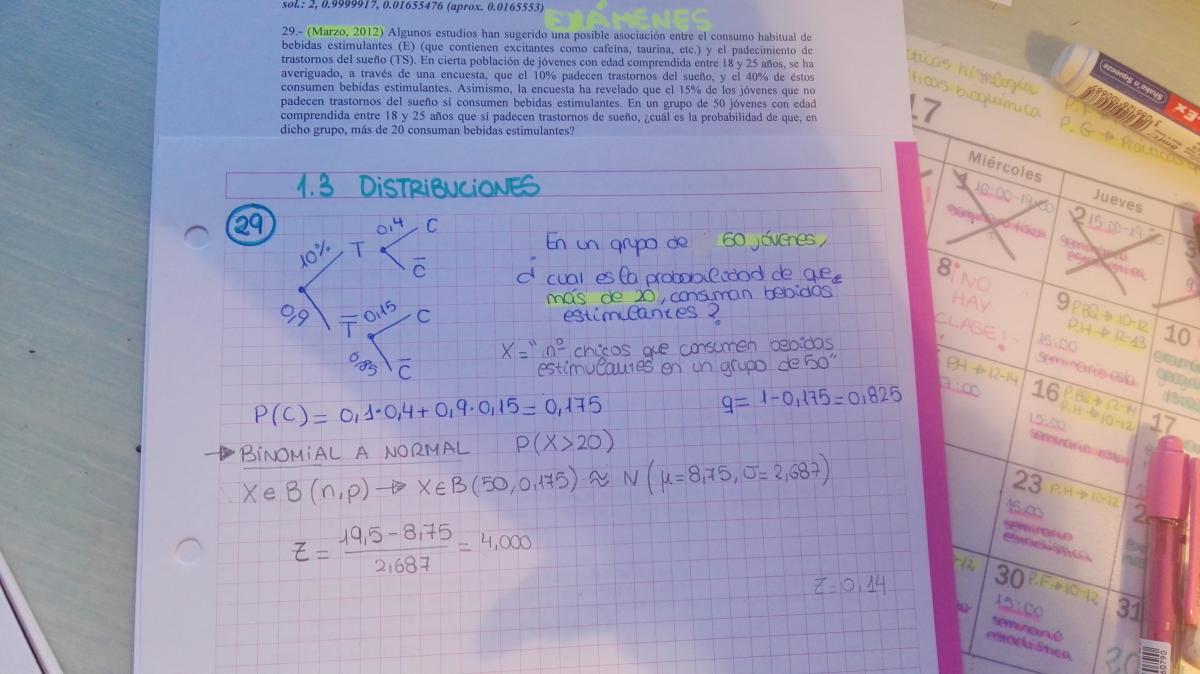 sol.: 2, 0.9999917, 0.01655476 (aprox. 0.0165553)
EXÁMENES
29.- (Marzo, 2012) Algunos estudios han sugerido una posible asociación entre el consumo habitual de
bebidas estimulantes (E) (que contienen excitantes como cafeína, taurina, etc.) y el padecimiento de
trastornos del sueño (TS). En cierta población de jóvenes con edad comprendida entre 18 y 25 años, se ha
averiguado, a través de una encuesta, que el 10% padecen trastornos del sueño, y el 40% de éstos
consumen bebidas estimulantes. Asimismo, la encuesta ha revelado que el 15% de los jóvenes que no
padecen trastornos del sueño sí consumen bebidas estimulantes. En un grupo de 50 jóvenes con edad
comprendida entre 18 y 25 años que sí padecen trastornos de sueño, ¿cuál es la probabilidad de que, en
dicho grupo, más de 20 consuman bebidas estimulantes?
1.3 DISTRIBUCIONES
29
10% T 0,4 C
C̅
0,9 T̅ 0,15 C
0,85 C̅
En un grupo de 50 jóvenes,
¿ cual es la probabilidad de que
más de 20, consuman bebidas
estimulantes?
X = "nº chicos que consumen bebidas
estimulantes en un grupo de 50"
P(C) = 0,1·0,4 + 0,9·0,15 = 0,175
q = 1-0,175 = 0,825
→ BINOMIAL A NORMAL P(X>20)
X∈B(n,p) → X∈B(50,0,175) ≈ N(μ=8,75, σ=2,687)
Z = 19,5 - 8,75 / 2,687 = 4,000
Z = 0,14
ticas histología
ticas bioquímica
P.G → Prácticas
17
Miércoles
Jueves
1 16:00-19:00
2 15:00-19:30
8 ¡NO
HAY
CLASE!
9 P.BQ → 10-12
P.H → 12-13
15:00
seminario esta
10
P.H → 12-14
16 P.BQ → 12-14
P.H → 10-12
15:00
seminario estad
17
23 P.H → 10-12
15:00
seminario
estadística
30 P.F → 10-12
15:00
seminario
estadística
31
Shake'n Squeeze
60790